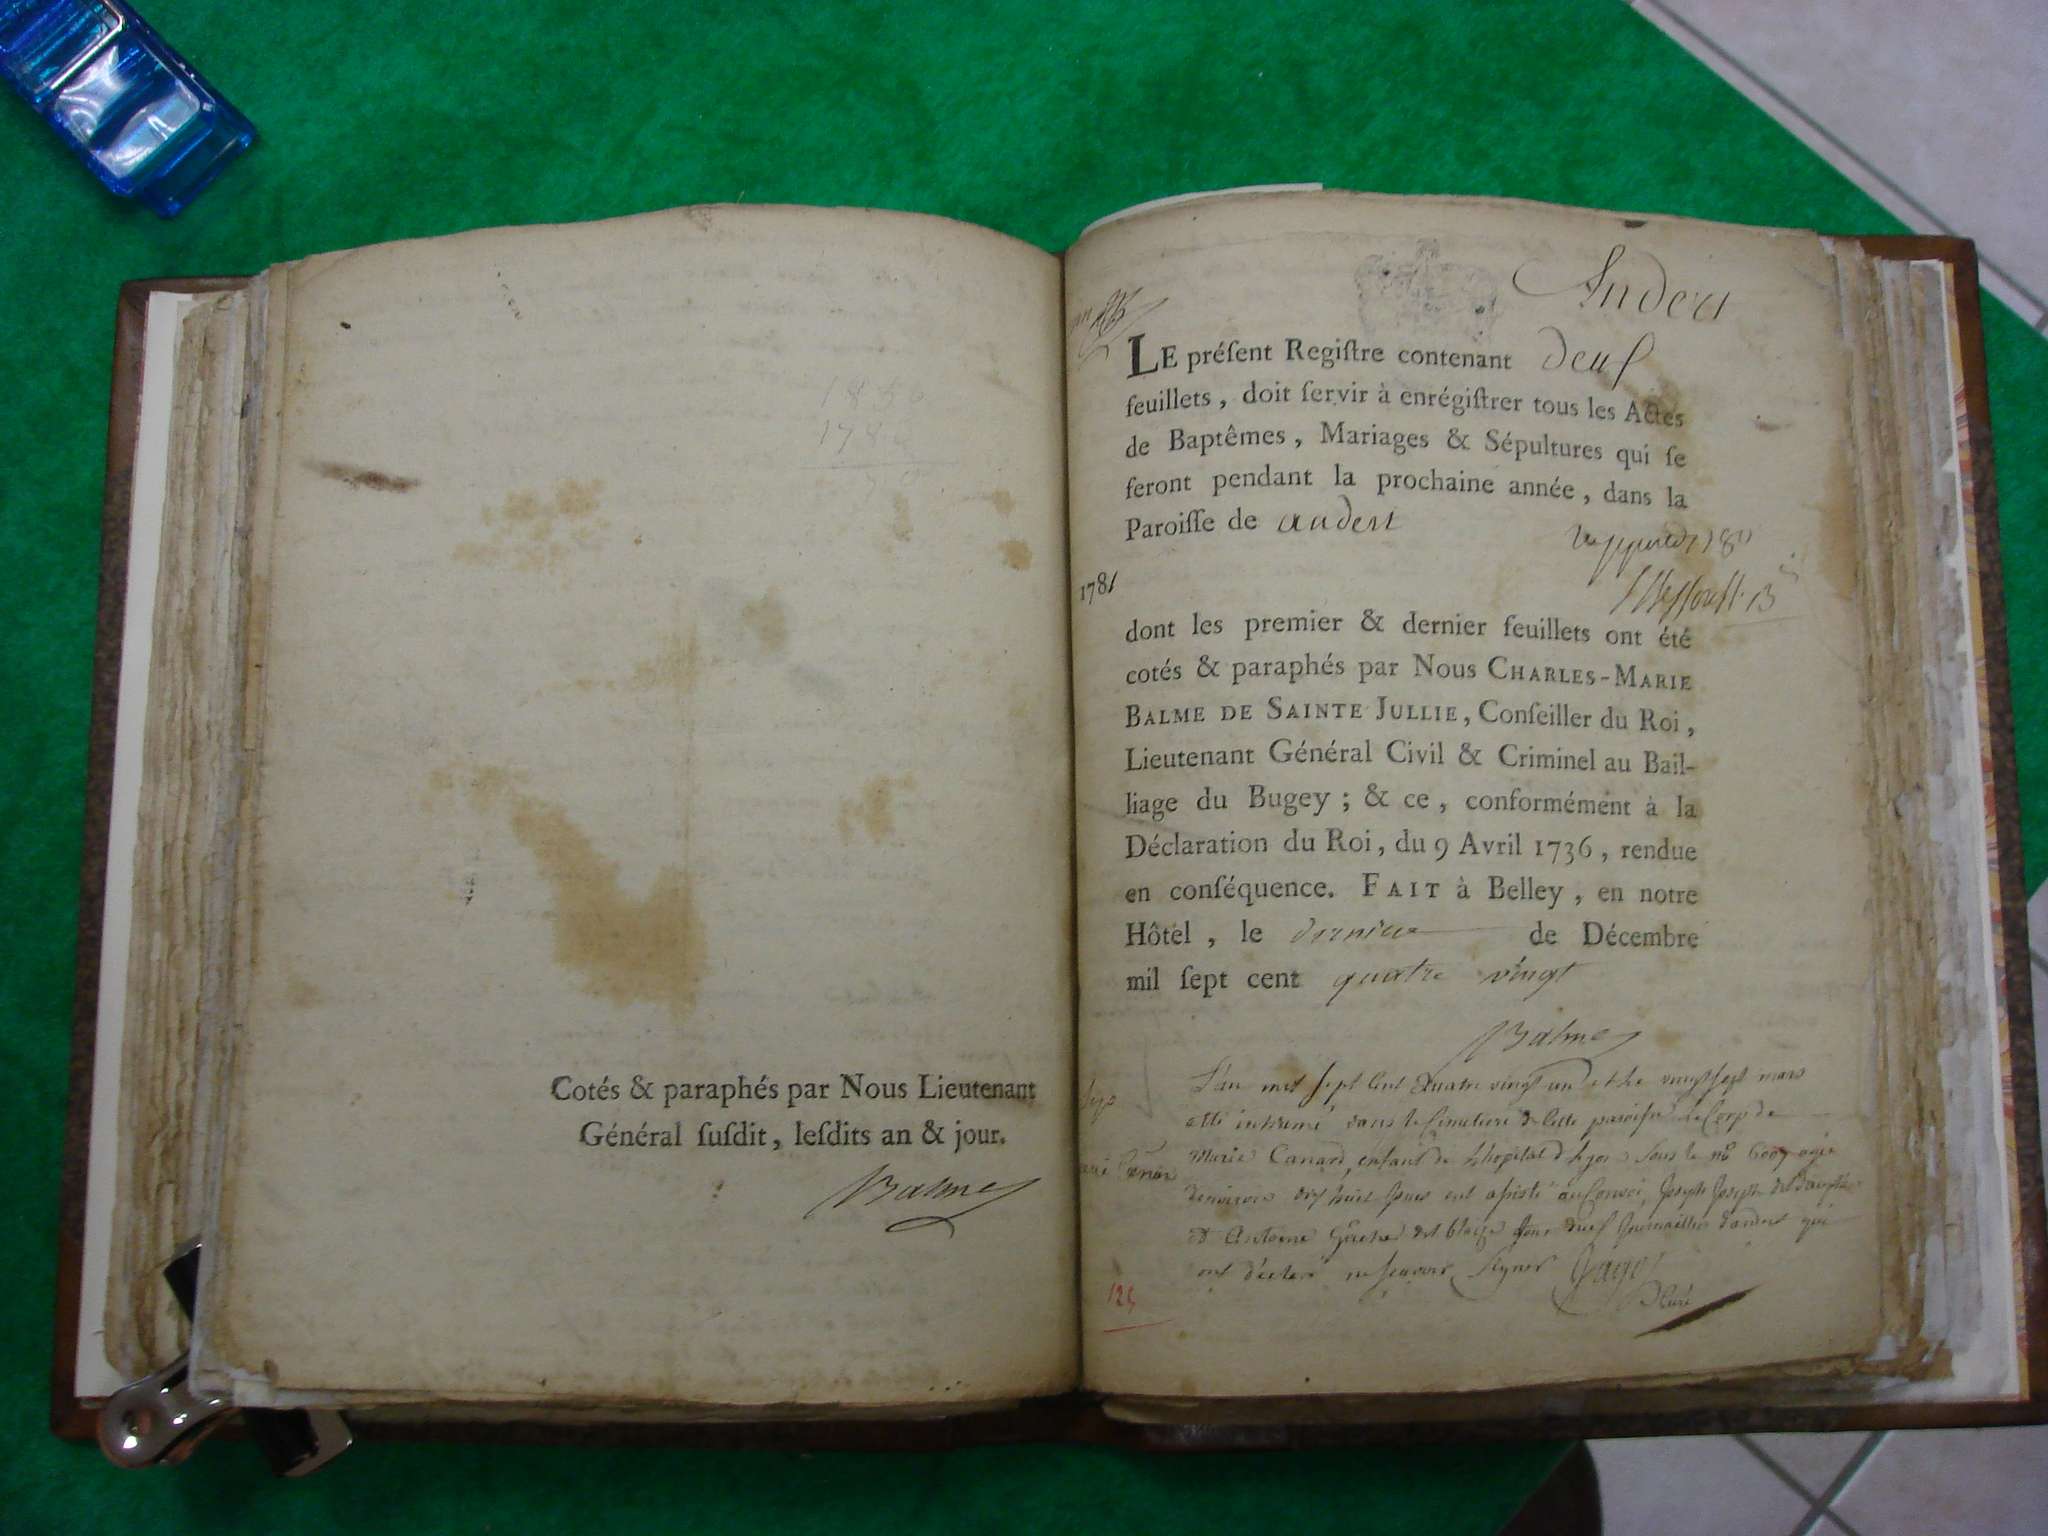 1780
178
Cotés & paraphés par Nous Lieutenant
Général ſuſdit, leſdits an & jour.
Balme
Andert
LE préſent Regiſtre contenant deuf
feuillets, doit ſervir à enrégiſtrer tous les Actes
de Baptêmes, Mariages & Sépultures qui ſe
feront pendant la prochaine année, dans la
Paroiſſe de andert
1781
dont les premier & dernier feuillets ont été
cotés & paraphés par Nous CHARLES-MARIE
BALME DE SAINTE JULLIE, Conſeiller du Roi,
Lieutenant Général Civil & Criminel au Bail-
liage du Bugey ; & ce, conformément à la
Déclaration du Roi, du 9 Avril 1736, rendue
en conſéquence. FAIT à Belley, en notre
Hôtel, le dernier de Décembre
mil ſept cent quatre vingt
Balme
L'an mil sept cent quatre vingt un et le vingt sept mars
a été inhumé dans le Cimetiere de cette paroisse le Corp de
Marie Canard, enfant de l'hopital d Lyon sous le no 6007 agée
d'environ dix huit jours ont assisté au Convoi, Joseph Joseph dit
et Antoine dit blaize tous deuf journaillier d'andert qui
ont déclaré ne scavoir signer
Curé
125